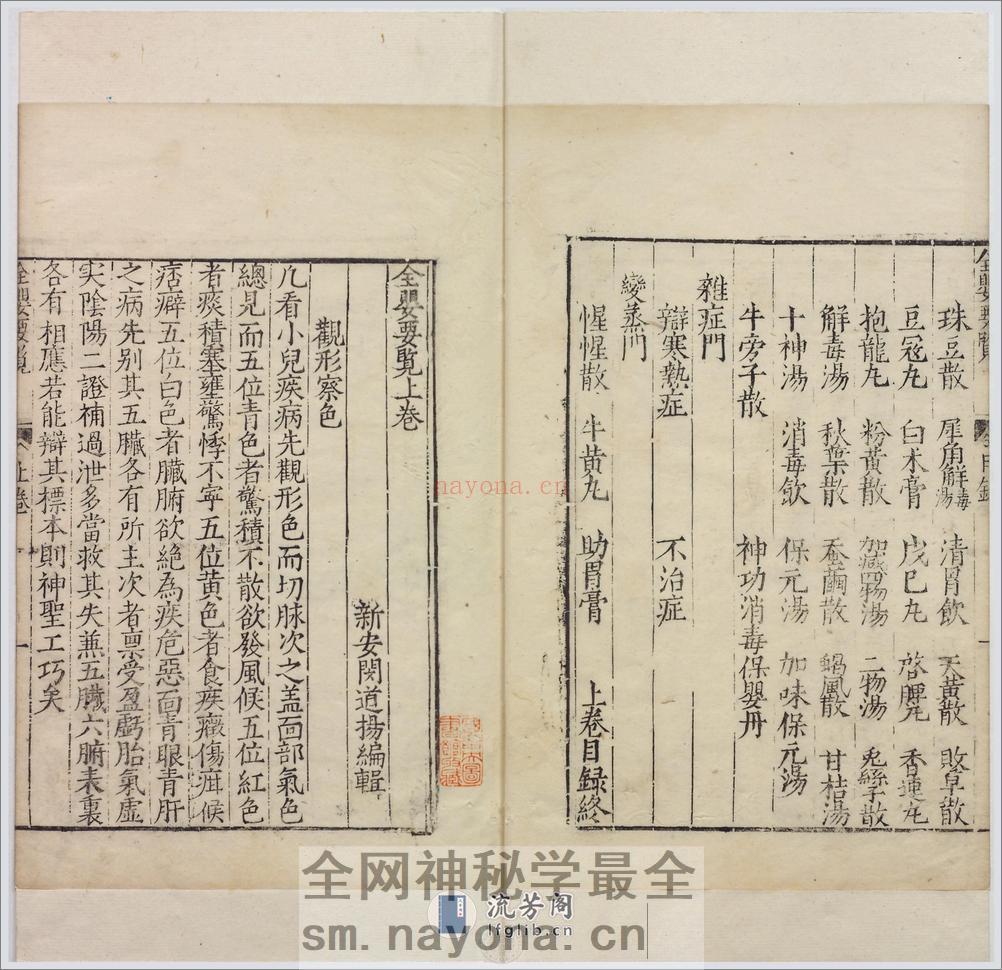 全嬰要覧
目錄
珠豆散 犀角解毒湯 清胃飲 天黄散 敗草散
豆冦丸 白术膏 戊巳丸 啓脾丸 香連丸
抱龍丸 粉黄散 加減四物湯 二物湯 兎絲子散
解毒湯 秋葉散 蚕繭散 蝎風散 甘桔湯
十神湯 消毒飲 保元湯 加味保元湯
牛旁子散 神功消毒保嬰丹
雜症門
辯寒熱症 不治症
變蒸門
惺惺散 牛黄丸 助胃膏 上卷目録終
全嬰要覧上卷
新安閔道揚編輯
觀形察色
凢看小兒疾病先觀形色而切脉次之盖面部氣色
總見而五位青色者驚積不散欲發風候五位紅色
者痰積塞壅驚悸不寜五位黄色者食疾癥傷疳候
痞癖五位白色者臟腑欲絶為疾危惡面青眼青肝
之病先别其五臟各有所主次者禀受盈虧胎氣虚
実陰陽二證補過泄多當救其失兼五臟六腑表裏
各有相應若能辯其標本則神聖工巧矣
全嬰要覧
上卷
一
nayona.cn
全网神秘学最全
流芳阁
lfglib.cn
sm.nayona.cn